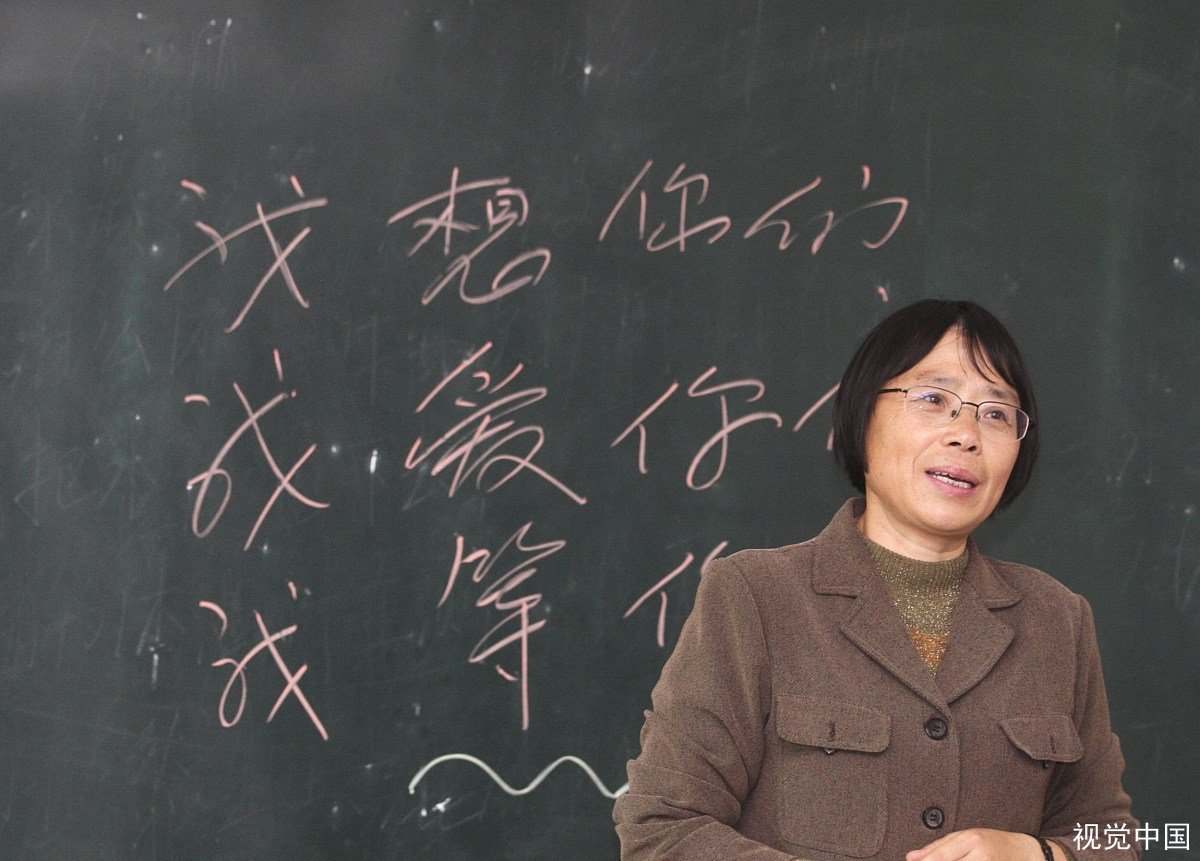 我想你们
我爱你
我等
视觉中国